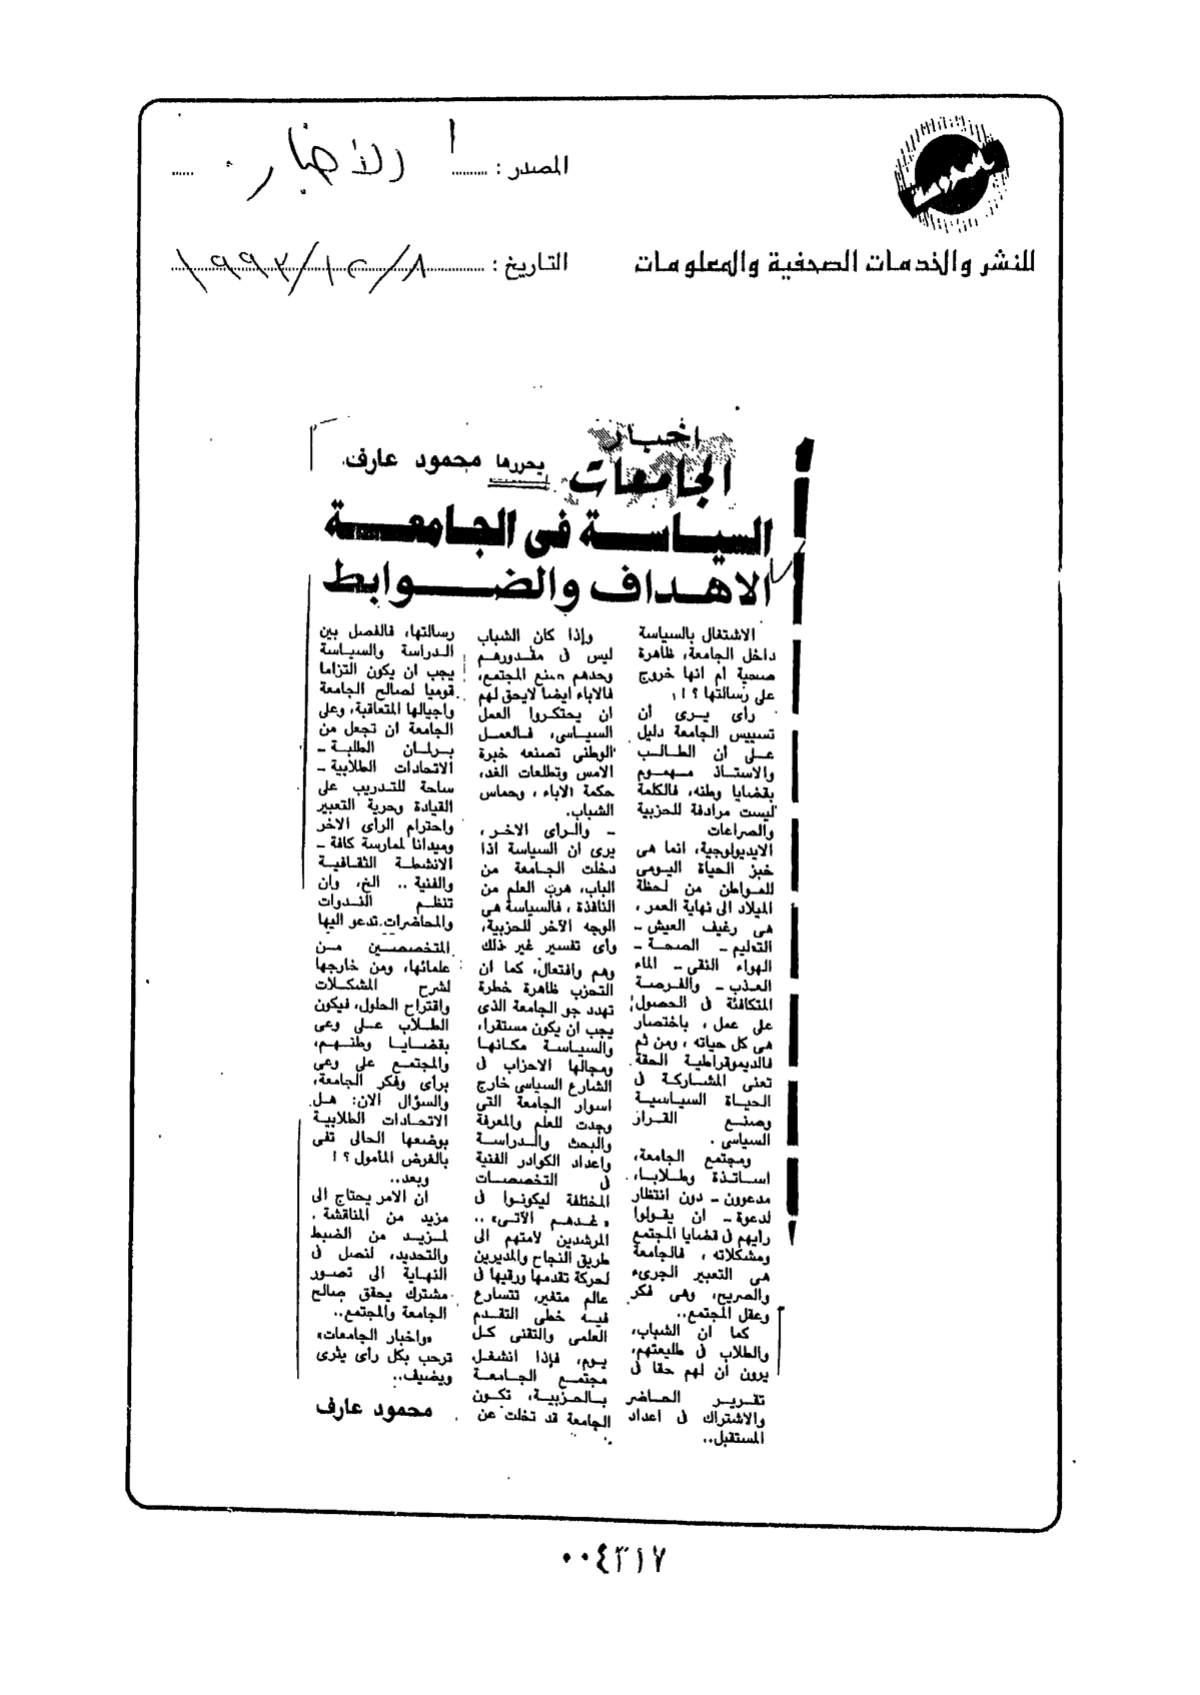 المصدر : الأخبار
للنشر والخدمات الصحفية والمعلومات
التاريخ : ٨/١٢/١٩٩٣
اخبار
الجامعات
يحررها محمود عارف
السياسة فى الجامعة
الاهداف والضوابط
الاشتغال بالسياسة
داخل الجامعة، ظاهرة
صحية أم انها خروج
على رسالتها ؟ !
رأى يرى أن
تسييس الجامعة دليل
على أن الطالب
والاستاذ مهموم
بقضايا وطنه، فالكلمة
ليست مرادفة للحزبية
والصراعات
الايديولوجية، انما هى
خبز الحياة اليومى
للمواطن من لحظة
الميلاد الى نهاية العمر ،
هى رغيف العيش ــ
التعليم ــ الصحة ــ
الهواء النقى ــ الماء
العذب ــ والفرصة
المتكافئة فى الحصول
على عمل ، باختصار
هى كل حياته ، ومن ثم
فالديموقراطية الحقة
تعنى المشاركة فى
الحياة السياسية
وصنع القرار
السياسى .
ومجتمع الجامعة،
اساتذة وطلابا،
مدعوون ــ دون انتظار
لدعوة ــ ان يقولوا
رايهم فى قضايا المجتمع
ومشكلاته ، فالجامعة
هى التعبير الجرىء
والصريح، وهى فكر
وعقل المجتمع..
كما ان الشباب،
والطلاب فى طليعتهم،
يرون ان لهم حقا فى
تقرير الحاضر
والاشتراك فى اعداد
المستقبل..
وإذا كان الشباب
ليس فى مقدورهم
وحدهم صنع المجتمع،
فالاباء ايضا لايحق لهم
ان يحتكروا العمل
السياسى، فالعمل
الوطنى تصنعه خبرة
الامس وتطلعات الغد،
حكمة الاباء ، وحماس
الشباب.
ــ والرأى الاخر ،
يرى ان السياسة اذا
دخلت الجامعة من
الباب، هرب العلم من
النافذة ، فالسياسة هى
الوجه الآخر للحزبية،
واى تفسير غير ذلك
وهم وافتعال، كما ان
التحزب ظاهرة خطرة
تهدد جو الجامعة الذى
يجب ان يكون مستقرا،
والسياسة مكانها
ومجالها الاحزاب فى
الشارع السياسى خارج
اسوار الجامعة التى
وجدت للعلم والمعرفة
والبحث والدراسة
واعداد الكوادر الفنية
فى التخصصات
المختلفة ليكونوا فى
«غدهم الآتى» ..
المرشدين لامتهم الى
طريق النجاح والمديرين
لحركة تقدمها ورقيها فى
عالم متغير، تتسارع
فيه خطى التقدم
العلمى والتقنى كل
يوم، فإذا انشغل
مجتمع الجامعة
بالحزبية، تكون
الجامعة قد تخلت عن
رسالتها، فالفصل بين
الدراسة والسياسة
يجب ان يكون التزاما
قوميا لصالح الجامعة
واجيالها المتعاقبة، وعلى
الجامعة ان تجعل من
برلمان الطلبة ــ
الاتحادات الطلابية ــ
ساحة للتدريب على
القيادة وحرية التعبير
واحترام الراى الاخر
وميدانا لممارسة كافة ــ
الانشطة الثقافية
والفنية .. الخ، وان
تنظم الندوات
والمحاضرات تدعو اليها
المتخصصين من
علمائها، ومن خارجها
لشرح المشكلات
واقتراح الحلول، فيكون
الطلاب على وعى
بقضايا وطنهم،
والمجتمع على وعى
براى وفكر الجامعة،
والسؤال الان: هل
الاتحادات الطلابية
بوضعها الحالى تفى
بالغرض المأمول ؟ !
وبعد..
ان الامر يحتاج الى
مزيد من المناقشة .
لمزيد من الضبط
والتحديد، لنصل فى
النهاية الى تصور
مشترك يحقق صالح
الجامعة والمجتمع..
«واخبار الجامعات»
ترحب بكل راى يثرى
ويضيف..
محمود عارف
٠٠٤٣١٧